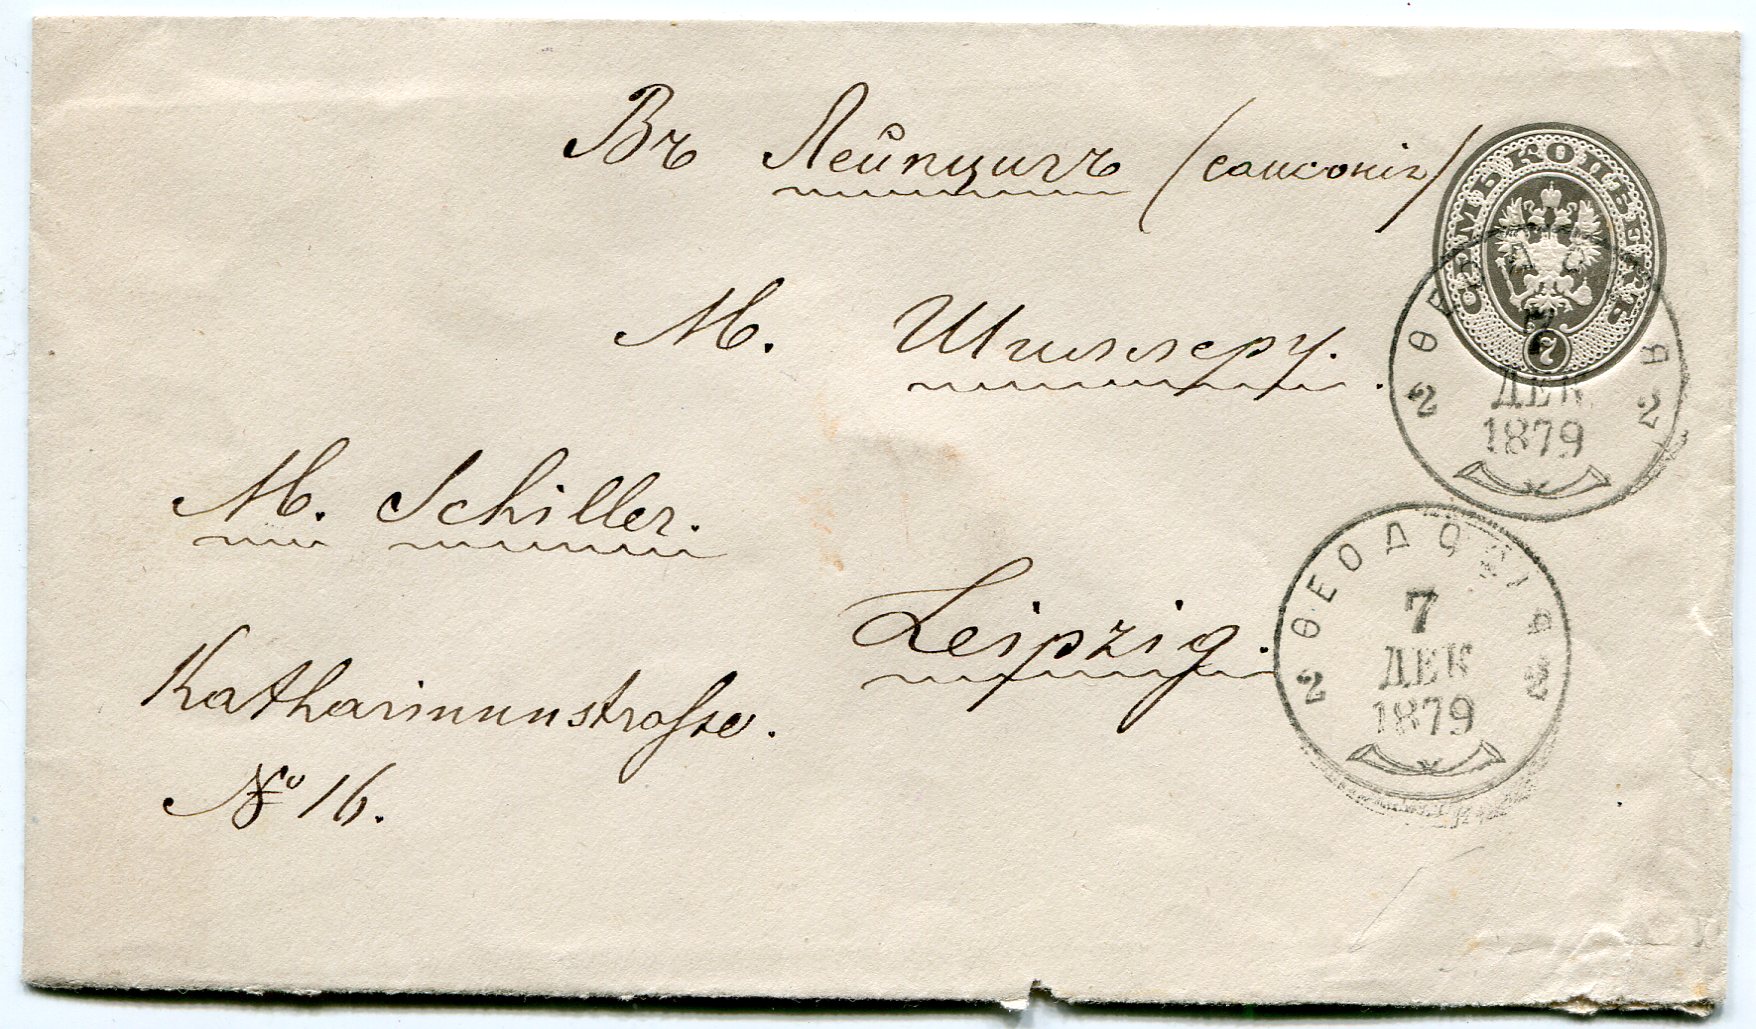 Въ Лейпцигъ (саксонія)
СЕМЬ КОПѢЕКЪ
7
М. Шиллеру.
2 ѲЕ Я 2
7
ДЕК
1879
M. Schiller.
Leipzig.
2 ѲЕОДОСІЯ 2
7
ДЕК
1879
Katharinenstrasse.
№ 16.